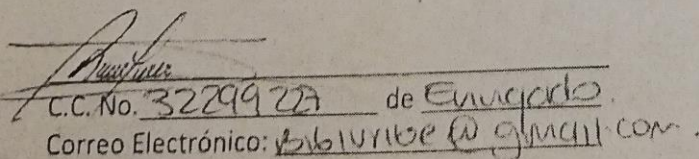 C.C. No. 32299227 de Envigado.
Correo Electrónico: bibiuribe@gmail.com